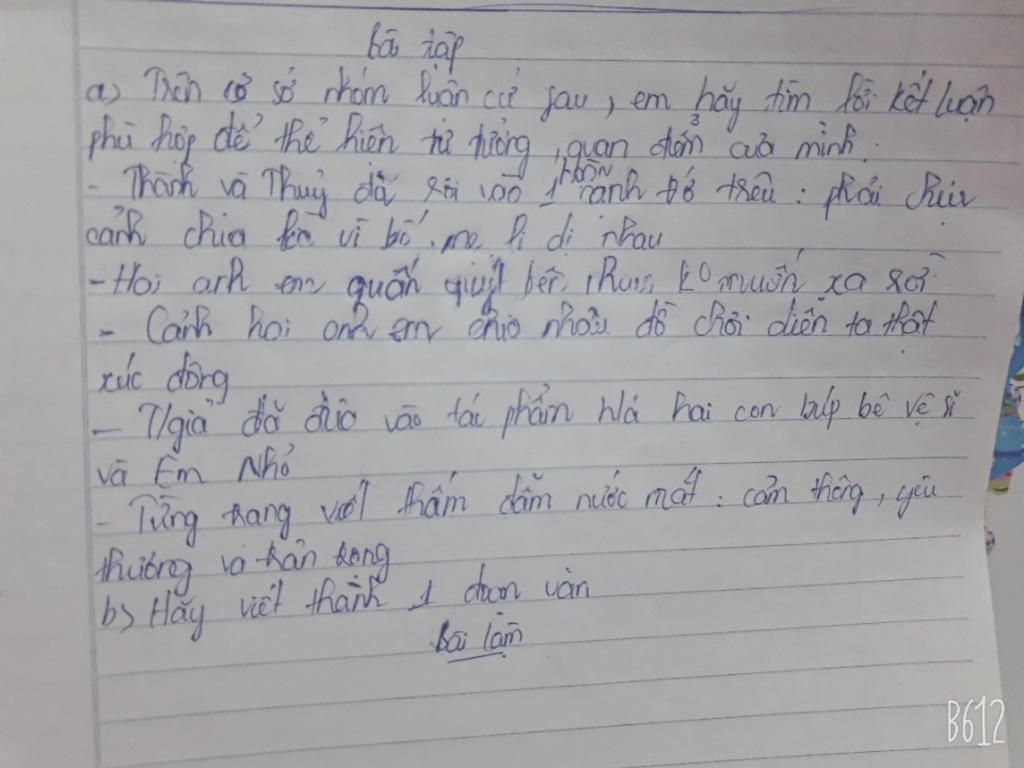 Bài tập
a) Trên cơ sở nhóm luận cứ sau, em hãy tìm lời kết luận
phù hợp để thể hiện tư tưởng, quan điểm của mình.
- Thành và Thuỷ đã rơi vào 1 hoàn cảnh trớ trêu : phải chịu
cảnh chia lìa vì bố, mẹ li dị nhau
- Hai anh em quấn quýt bên nhau, ko muốn xa rời
- Cảnh hai anh em chia nhau đồ chơi diễn tả thật
xúc động
- T/giả đã đưa vào tác phẩm h/ả hai con búp bê vệ sĩ
và Em Nhỏ
- Từng trang viết thấm đẫm nước mắt : cảm thông, yêu
thương và trân trọng
b) Hãy viết thành 1 đoạn văn
Bài làm
B612